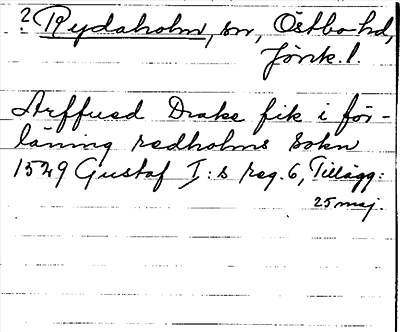 2 Rydaholm, sn, Östbo hd,
Jönk. l.
Arffued Drake fik i för-
läning redholms sokn
1529 Gustaf I:s reg. 6, Tillägg:
25 maj.